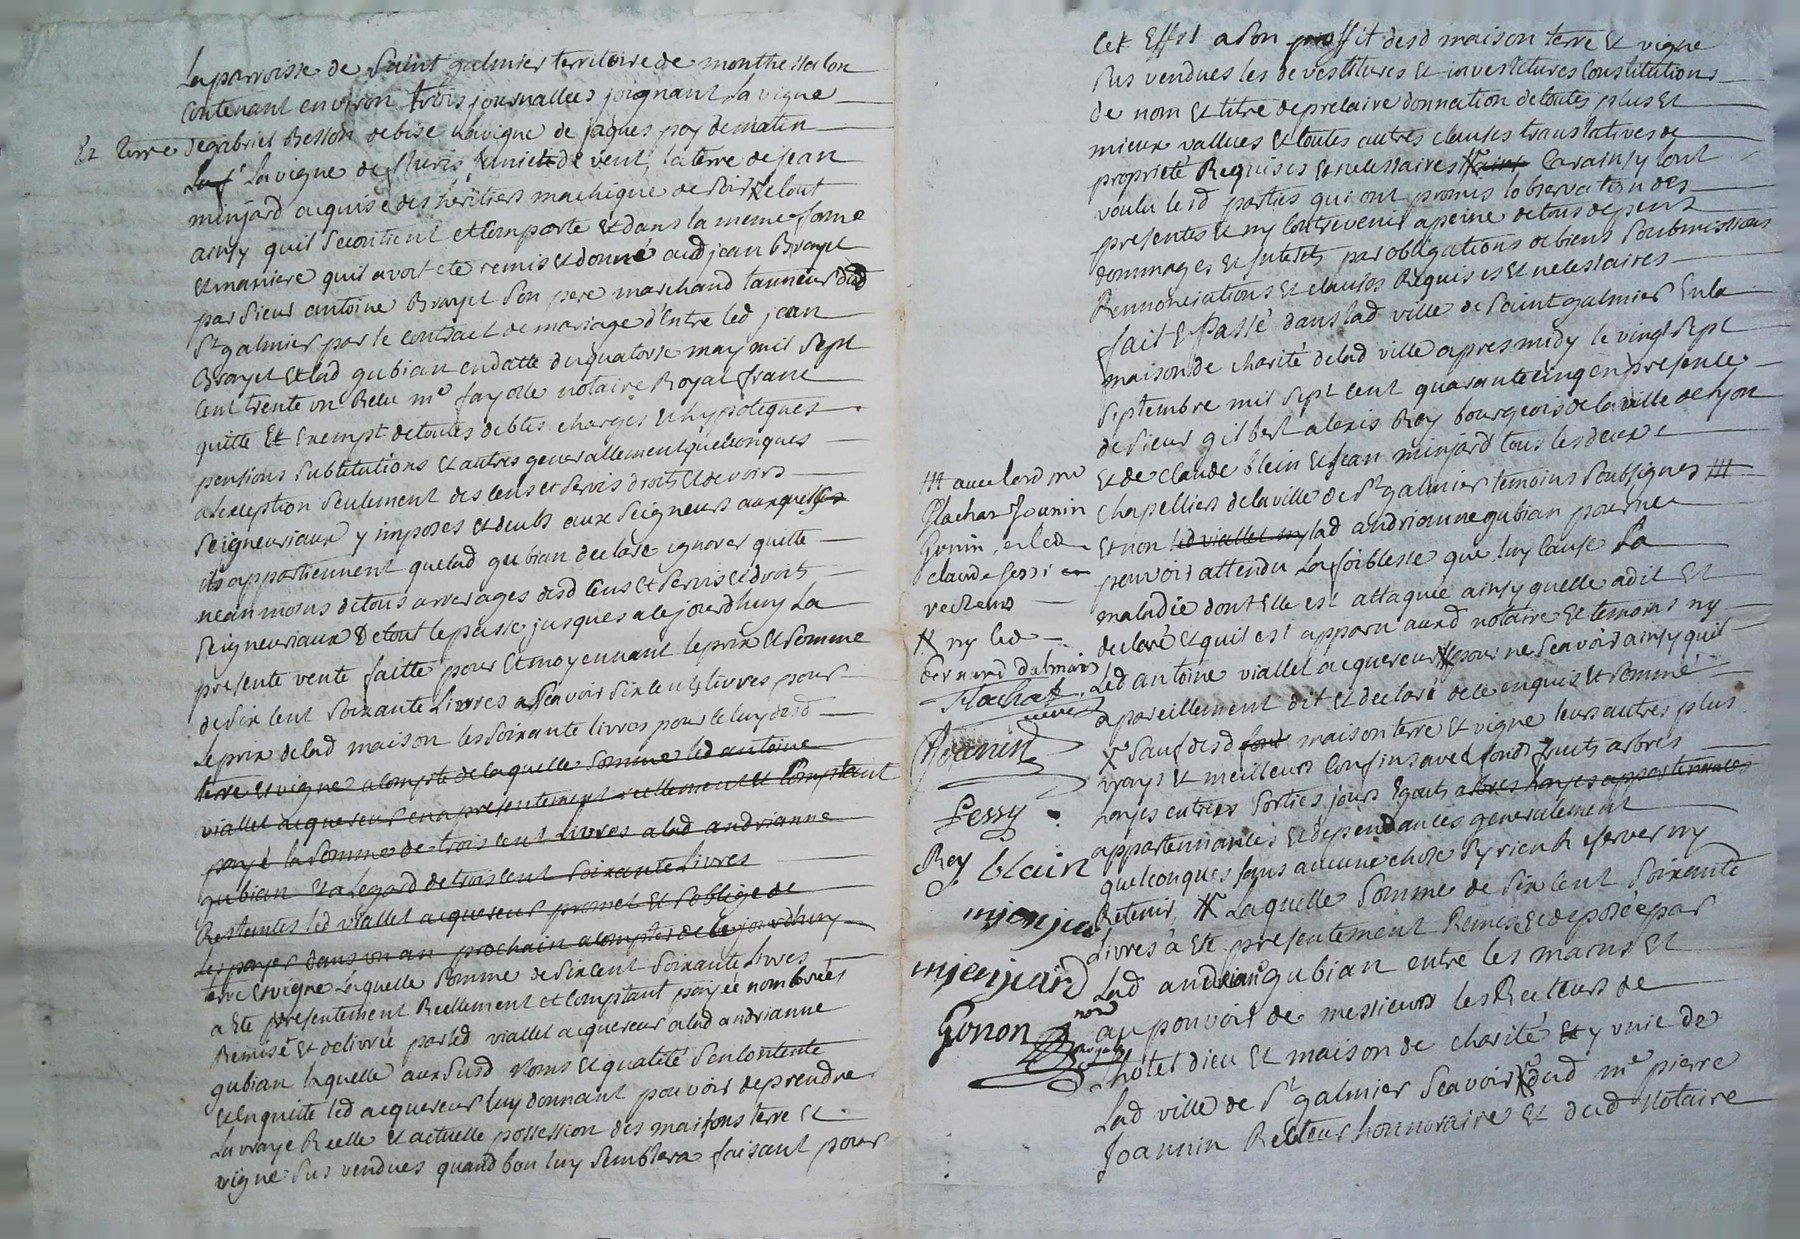 La parroisse de Saint galmier territoire de
Contenant environ trois journallees joignant La vigne
Et terre de gabriel Besson de bise La vigne de jaques poy de matin
La vigne de fleuris de vent, la terre de jean
minjard acquise des heritiers machigue de soir & le tout
ainsy quil se contient et Comporte Et dans la meme forme
Et maniere quil avoit eté remis Et donné aud jean Brayet
par Sieur antoine Brayet Son pere marchand tanneur dud
St galmier par le contract de mariage d'Entre led jean
Brayet Et lad gubian en datte du quatorse may mil Sept
Cent trente un Recu me fayolle notaire Royal franc
quitte Et Exempt de toutes debtes charges Et hypoteques
pensions Subtitutions Et autres generallement quelconques
a lexception Seulement des Cens et Servis droits Et devoirs
Seigneuriaux y imposes et deubs aux Seigneurs auxquels
ils appartiennent que lad gubian declare ignorer quitte
neanmoins de tous arrerages desd Cens et Servis Et droits
Seigneuriaux De tout le passe jusques a lejourdhuy La
presente vente faitte pour Et moyennant le prix Et Somme
de Six Cent Soixante Livres a Scavoir Six Cent livres pour
Le prix de lad maison les Soixante livres pour le luy desd
terre Et vigne a Compte de laquelle Somme led antoine
viallet acquereur en a presentement reellement Et Comptant
payé la Somme de trois Cent Livres a lad andrianne
gubian Et a Legard de trois Cent Soixante Livres
Restantes led viallet acquereur promet Et Soblige de
Les payer dans un an prochain a Compter de Lejourdhuy
terre Et vigne Laquelle Somme de Six Cent Soixante Livres
a Ete presentement Reellement et Comptant payée nombrée
Remise Et delivrée par led viallet acquereur a lad andrianne
gubian laquelle aux Susd noms Et qualité Sen Contente
Et en quitte led acquereur luy donnant pouvoir de prendre
La vraye Reelle Et actuelle possession des maisons terre Et
vigne Sus vendues quand bon luy Semblera faisant pour
Cet Effet a Son proffit desd maison terre Et vigne
Sus vendues les devestitures Et investitures Constitutions
de nom Et titre de precaire donnation de toutes plus Et
mieux vallues Et toutes autres clauses translatives de
proprieté Requises Et necessaires Car ainsy Lont
voulu lesd parties qui ont promis lobservation des
presentes Et ny Contrevenir a peine de tous depens
dommages Et Interets par obligations de biens Soubmissions
Rennonciations Et clauses Requises Et necessaires
fait Et Passé dans lad ville de Saint galmier En la
maison de charité de lad ville apres midy le vingt Sept
Septembre mil Sept Cent quarante cinq en presence
de Sieur gilbert alexis Rey bourgeois de la ville de lyon
Et de Claude blein Et Jean minjard tous les deux
Chapelliers de la ville de St galmier temoins Soubsignes ###
Et non led viallet ny lad andrianne gubian pour ne
pouvoir attendu La foiblesse que luy Cause La
maladie dont Elle est attaquée ainsy quelle a dit Et
declaré Et quil est apparu aud notaire Et temoins ny
Led antoine viallet acquereur pour ne Scavoir ainsy quil
a pareillement dit Et declaré de ce enquis Et Sommé
X Sauf desd maison terre Et vigne leurs autres plus
vrays Et meilleurs Confins avec fonds fruits arbres
hayes entrées Sorties jours Egouts arbres hayes appartenances
appartennances Et dependances generalement
quelconques Sans aucune chose Sy rien Reserver ny
Retenir, X Laquelle Somme de Six Cent Soixante
Livres a Ete presentement Remise Et deposée par
Lad andrianne gubian entre les mains Et
au pouvoir de messieurs les Recteurs de
Lhotel dieu Et maison de charité y unie de
Lad ville de St galmier Scavoir dud me pierre
Joannin Recteur honnoraire Et dud notaire
### avec lesd me
flachat Jounin
Gonin, et led
claude fessi
recteurs
X ny led
bernard dalmais
Flachat
Joannin
Fessy
Rey blain
minjard
Gonon nore
royal